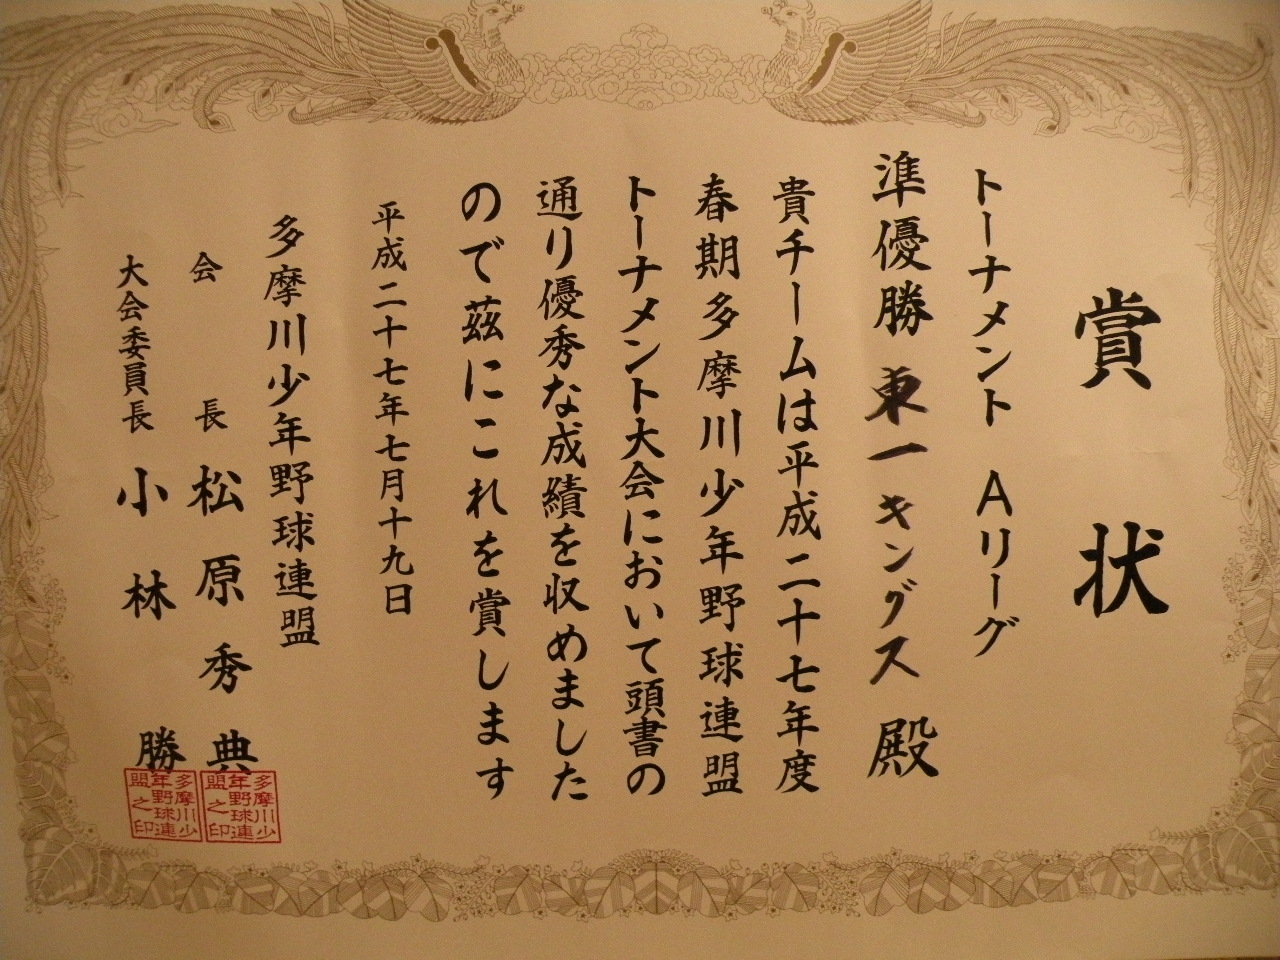 賞状
トーナメント Aリーグ
準優勝 東一キングス 殿
貴チームは平成二十七年度
春期多摩川少年野球連盟
トーナメント大会において頭書の
通り優秀な成績を収めました
ので茲にこれを賞します
平成二十七年七月十九日
多摩川少年野球連盟
会長 松原秀典
大会委員長 小林勝
多摩川少
年野球連
盟之印
多摩川少
年野球連
盟之印